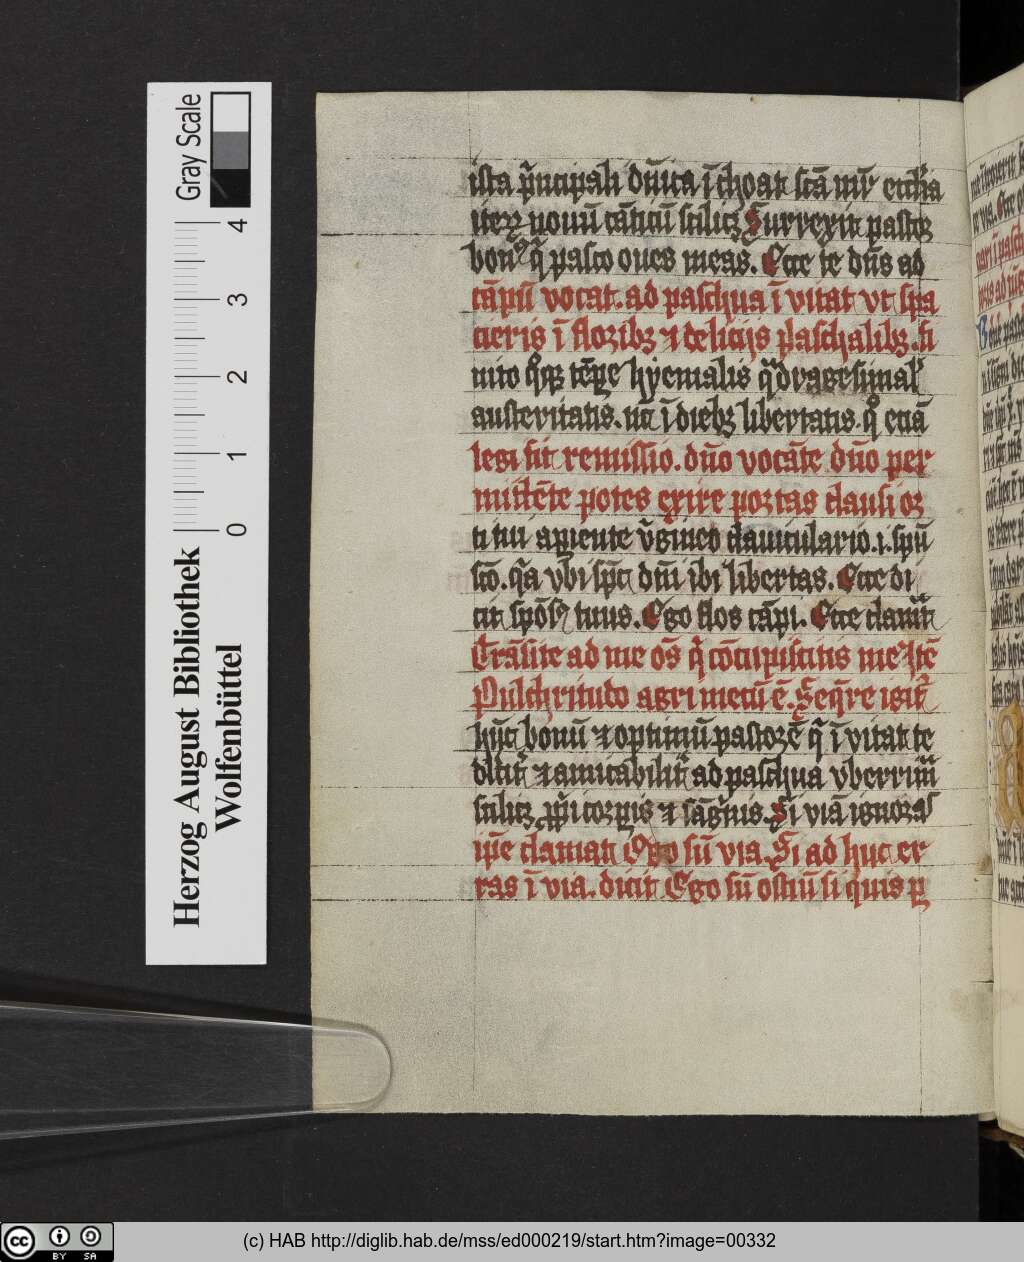 Gray Scale
4
3
2
1
0
Herzog August Bibliothek
Wolfenbüttel
ista p̄ncipali dn̄ica ī choat scā mr̄ eccl̄ia
nouū cāticū scilicꝫ Surrexit pastor
bonꝰ q̄ pasco oues meas. Ecce te dn̄s ad
cāpū vocat. ad paschua ī vitat vt spa
cieris ī floribꝫ ⁊ deliciis paschalibꝫ. fi
nito tēꝑe hyemalis q̄dragesimal
austeritatis. ut ī diebꝫ libertatis. etiā
legi sit remissio. dn̄o vocāte dn̄o per
mittēte potes exire portas clausi or
ti tui apiente v̄gineo clauiculario .i. spū
sc̄o. q̄a vbi sp̄c dn̄i ibi libertas. Ecce di
cit spōsꝰ tuus. Ego flos cāpi. Ecce clamat
Trāsite ad me om̄s q̄ cōcupiscitis me ⁊ tē
Pulchritudo agri mecū ē. Seq̄re igit᷑
hūc bonū ⁊ optimū pastorē q̄ ī vitat te
dlc̄it᷑ ⁊ amicabilit᷑ ad paschua vberrima
scilicꝫ ꝓp̄i corꝑis ⁊ sāgnis. Si viā ignoras
ip̄e clamat Ego sū via. Si ad huc er
ras ī via. dicit Ego sū ostiū si quis ꝑ
(c) HAB http://diglib.hab.de/mss/ed000219/start.htm?image=00332
cc BY SA